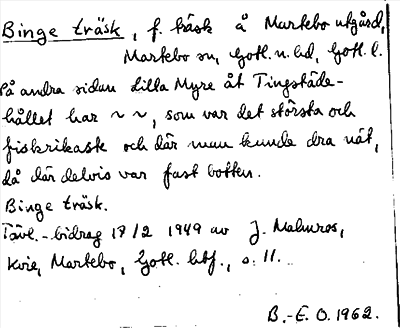 Binge träsk, f. träsk å Martebo utgård,
Martebo sn, Gotl. n. hd, Gotl. l.
På andra sidan Lilla Myre åt Tingstäde-
hållet har ~ ~, som var det största och
fiskrikaste och där man kunde dra nät,
då där delvis var fast botten.
Binge träsk.
Tävl.-bidrag 18/2 1949 av J. Malmros,
Kvie, Martebo, Gotl. s. 11.
B.-E. O. 1962.